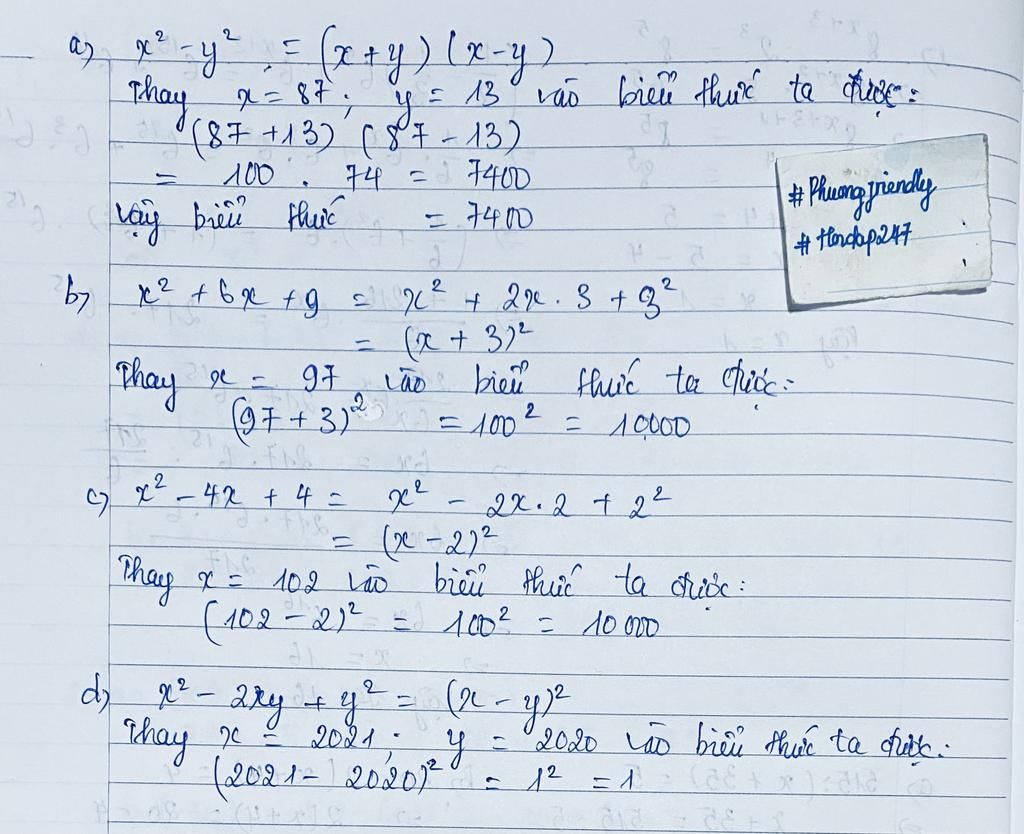 a) x² - y² = (x + y) (x - y)
Thay x = 87 ; y = 13 vào biểu thức ta được :
(87 + 13) (87 - 13)
= 100 . 74 = 7400
Vậy biểu thức = 7400
#Phuongfriendly
#Hoidap247
b) x² + 6x + 9 = x² + 2x . 3 + 3²
= (x + 3)²
Thay x = 97 vào biểu thức ta được :
(97 + 3)² = 100² = 10000
c) x² - 4x + 4 = x² - 2x . 2 + 2²
= (x - 2)²
Thay x = 102 vào biểu thức ta được :
(102 - 2)² = 100² = 10000
d) x² - 2xy + y² = (x - y)²
Thay x = 2021 ; y = 2020 vào biểu thức ta được :
(2021 - 2020)² = 1² = 1